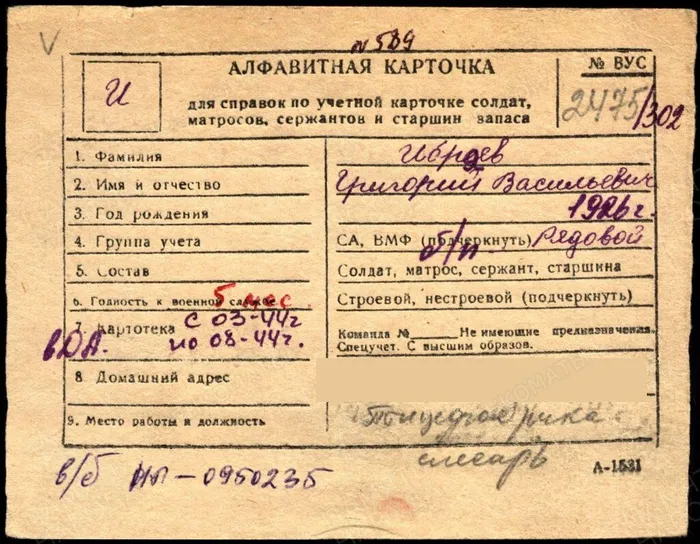 № 589
АЛФАВИТНАЯ КАРТОЧКА
№ ВУС
И
для справок по учетной карточке солдат,
матросов, сержантов и старшин запаса
2475/302
1. Фамилия
2. Имя и отчество Григорий Васильевич
3. Год рождения 1926 г.
4. Группа учета СА, ВМФ (подчеркнуть) Рядовой
б/п.
5. Состав Солдат, матрос, сержант, старшина
6. Годность к военной службе Строевой, нестроевой (подчеркнуть)
5 мес.
7. Картотека с 03-44г
в ДА. по 08-44г.
Команда № Не имеющие предназначения.
Спецучет. С высшим образов.
8. Домашний адрес
9. Место работы и должность Птицефабрика
слесарь
А-1531
в/б НП-0950235